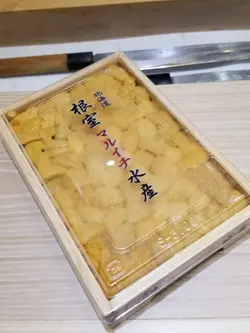 北海道
根室マルイチ水産